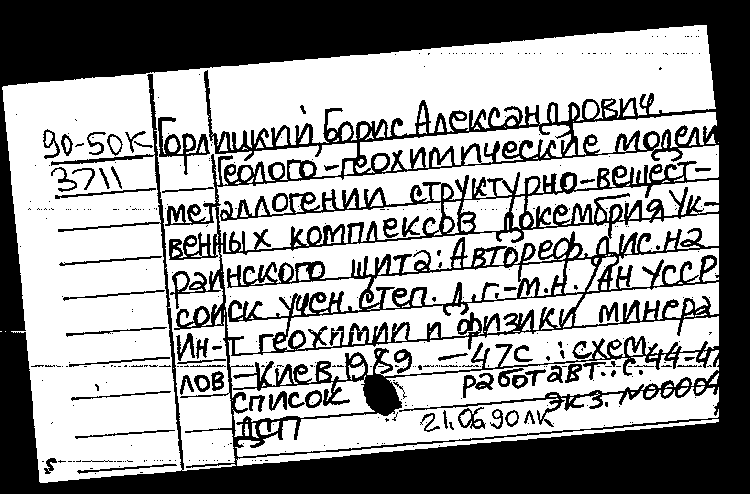 90-50К
3711
Горлицкий, Борис Александрович.
Геолого-геохимические модели
металлогении структурно-вещест-
венных комплексов докембрия Ук-
раинского щита: Автореф. дис. на
соиск. учен. степ. д.г.-м.н. /АН УССР.
Ин-т геохимии и физики минера
лов. -Киев, 1989. -47с.: схем.
список работ авт.: с. 44-47
ДСП экз. N00004
21.06.90 ЛК